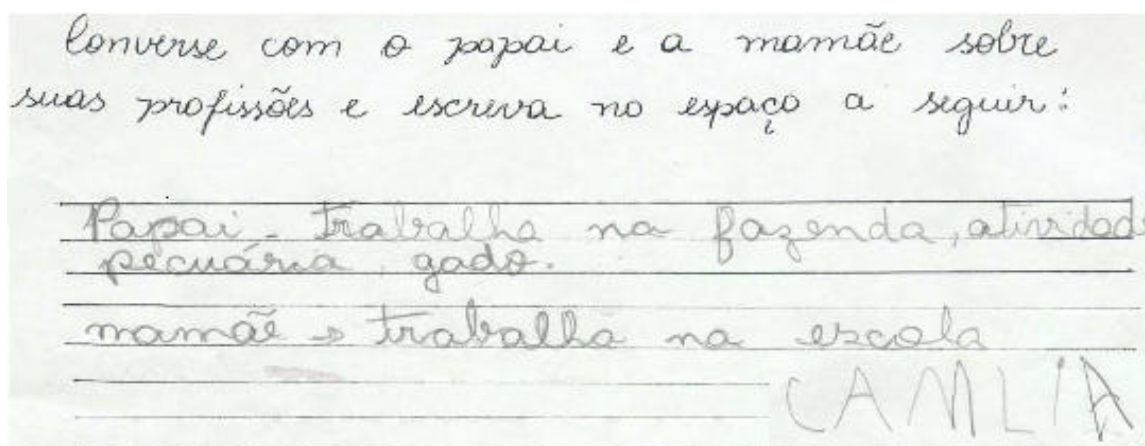 Converse com o papai e a mamãe sobre
suas profissões e escreva no espaço a seguir:
Papai - Trabalha na fazenda, atividade
pecuária, gado.
mamãe → trabalha na escola
CAMLIA